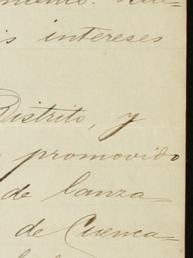 is intereses
Distrito, y
promovido
de lanza-
de Cuenca-